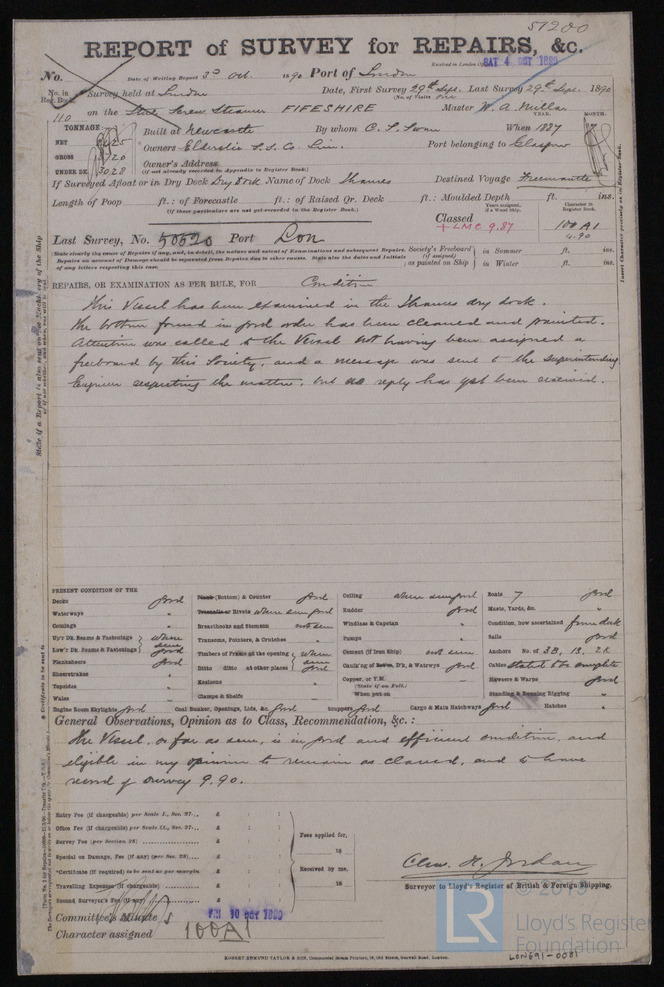 57200
REPORT of SURVEY for REPAIRS, &c.
Received in London Office SAT 4 OCT 1890
No. Date of Writing Report 3d Oct. 1890 Port of London
No. in Reg. Book. Survey held at London Date, First Survey 29th Sept. Last Survey 29th Sept. 1890
(No. of Visits One)
110 on the Steel Screw Steamer FIFESHIRE Master W. A. Millar
TONNAGE: Built at Newcastle By whom C. S. Swan When 1887
YEAR. MONTH.
NET 2425 Owners Elderslie S.S. Co. Lim. Port belonging to Glasgow
GROSS 3720 Owner's Address
UNDER DK. 3028 (if not already recorded in Appendix to Register Book.)
If Surveyed Afloat or in Dry Dock Dry Dock Name of Dock Thames Destined Voyage Fremantle
Length of Poop ft.: of Forecastle ft.: of Raised Qr. Deck ft.: Moulded Depth ft. ins.
(If these particulars are not yet recorded in the Register Book.)
Years assigned, if a Wood Ship. Character in Register Book.
Classed 100 A1
+ LMC 9.87 4.90
Last Survey, No. 50520 Port Lon
State clearly the cause of Repairs if any, and, in detail, the nature and extent of Examinations and subsequent Repairs. Repairs on account of Damage should be separated from Repairs due to other causes. State also the dates and initials of any letters respecting this case.
Society's Freeboard (if assigned) as painted on Ship in Summer ft. ins.
in Winter ft. ins.
REPAIRS, OR EXAMINATION AS PER RULE, FOR Condition
This Vessel has been examined in the Thames dry dock.
The bottom found in good order has been cleaned and painted.
Attention was called to the Vessel not having been assigned a
freeboard by this Society, and a message was sent to the superintending
Engineer respecting the matter, but no reply has yet been received.
PRESENT CONDITION OF THE
Decks good
Waterways "
Comings "
Upr Dk. Beams & Fastenings where seen good
Lowr Dk. Beams & Fastenings
Planksheers good
Sheerstrakes "
Topsides "
Wales "
Plank (Bottom) & Counter good
Treenails or Rivets where seen good
Breasthooks and Stemson not seen
Transoms, Pointers, & Crutches "
Timbers of Frame at the opening where seen good
Ditto ditto at other places
Keelsons "
Clamps & Shelfs "
Ceiling where seen good
Rudder good
Windlass & Capstan "
Pumps "
Cement (if Iron Ship) not seen
Caulk'ng of Bottm, D'k, & Watrwys good
Copper, or Y.M. (State if on Felt.)
When put on
Boats 7 good
Masts, Yards, &c. "
Condition, how ascertained from deck
Sails good
Anchors No. of 3B, 1S, 2K
Cables stated to be complete
Hawsers & Warps good
Standing & Running Rigging "
Engine Room Skylights good Coal Bunker, Openings, Lids, &c. good Scuppers good Cargo & Main Hatchways good Hatches "
General Observations, Opinion as to Class, Recommendation, &c.:
The Vessel, so far as seen, is in good and efficient condition, and
eligible in my opinion to remain as classed, and to have
record of survey 9.90.
Entry Fee (if chargeable) per Scale I., Sec. 27... £ : :
Office Fee (if chargeable) per Scale II., Sec. 27... £ : :
Survey Fee (per Section 28) £ : :
Special or Damage, Fee (if any) (per Sec. 28)... £ : :
*Certificate (if required) to be sent as per margin £ : :
Travelling Expenses (if chargeable) £ : :
Second Surveyor's Fee (if any) £ : :
Fees applied for, 18
Received by me, 18
Chas. H. Jordan
Surveyor to Lloyd's Register of British & Foreign Shipping.
Committee's Minute FRI 10 OCT 1890
Character assigned 100A1
ROBERT EDMUND TAYLOR & SON, Commercial Steam Printers, 19, Old Street, Goswell Road, London.
LR
© 2019
Lloyd's Register
Foundation
LON691-0081